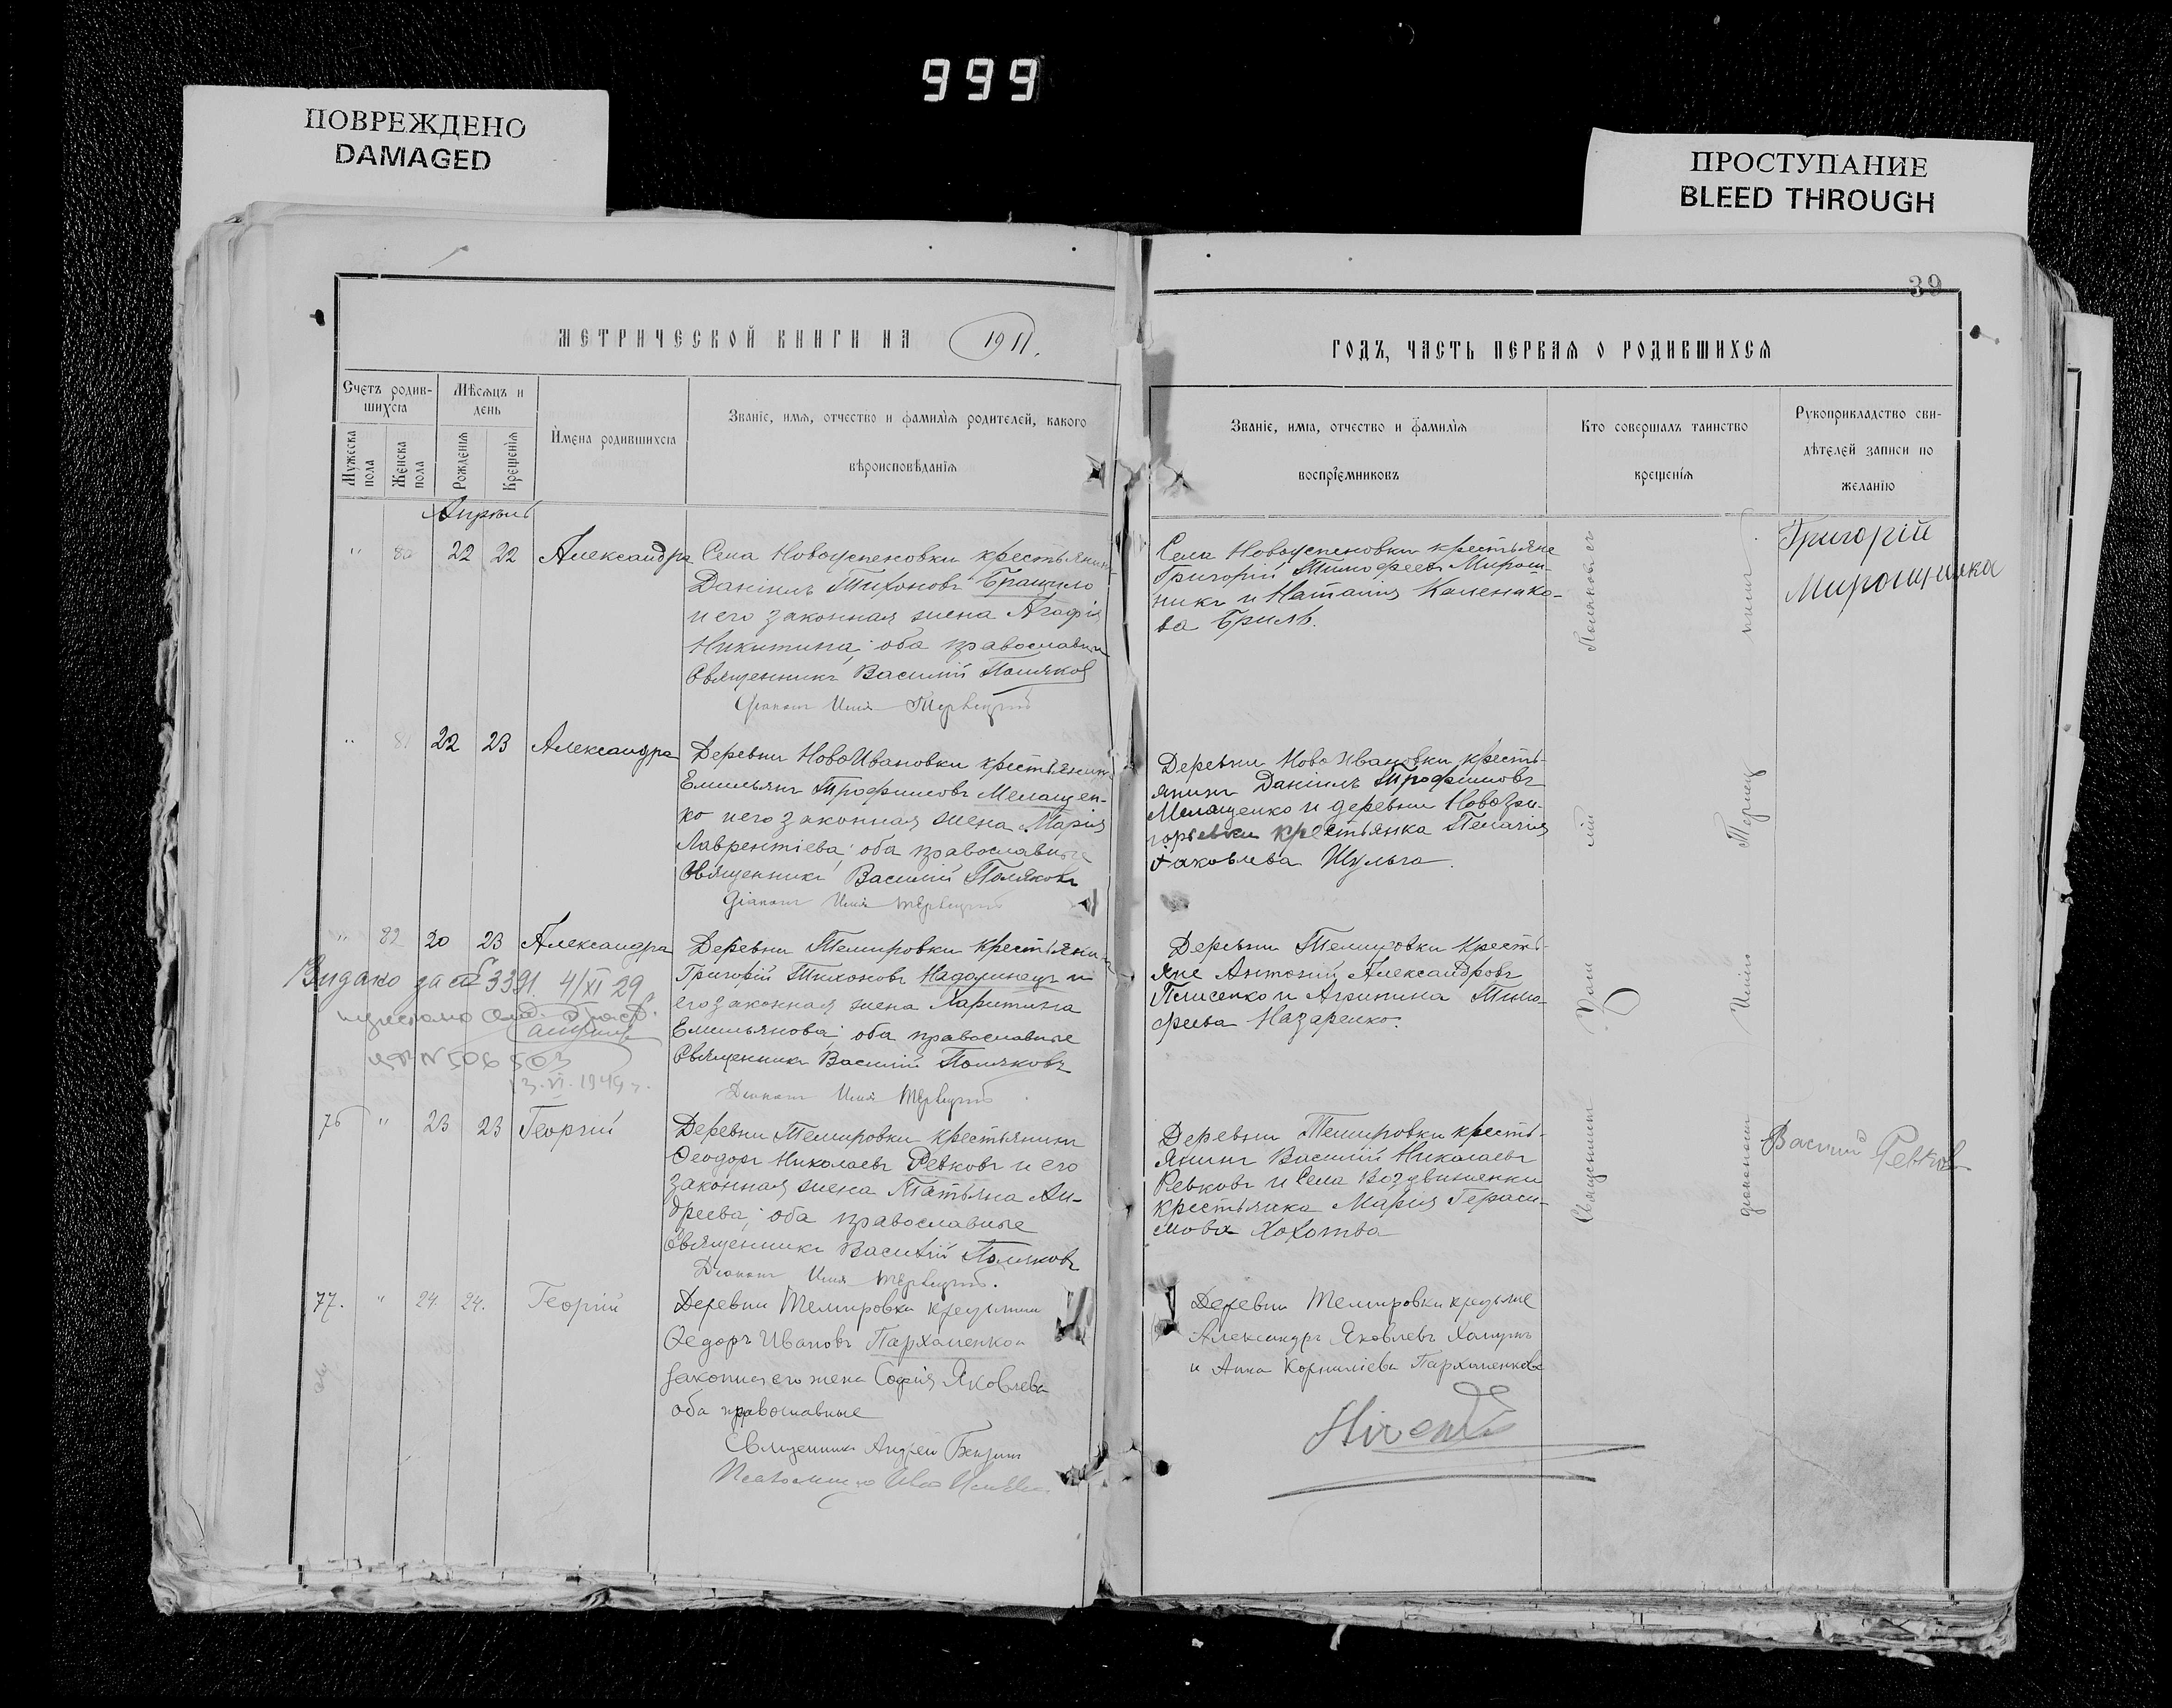 999
ПОВРЕЖДЕНО
DAMAGED
ПРОСТУПАНИЕ
BLEED THROUGH
39
МЕТРИЧЕСКОЙ КНИГИ НА 1911.
ГОДЪ, ЧАСТЬ ПЕРВАЯ О РОДИВШИХСЯ
Счетъ родив-
шихся
Мужеска пола
Женска пола
Мѣсяцъ и
день
Рожденія
Крещенія
Имена родившихся
Званіе, имя, отчество и фамилія родителей, какого
вѣроисповѣданія
Званіе, имя, отчество и фамилія
воспріемниковъ
Кто совершалъ таинство
крещенія
Рукоприкладство сви-
дѣтелей записи по
желанію
Апрѣль
" 80 22 22 Александра
Села Новоуспеновки крестьянин
Даніилъ Тихоновъ
и его законная жена Агафія
Никитина; оба православн
Священникъ Василій Поляков
Діаконъ Илія
Села Новоуспеновки крестьяне
Григорій Тимофеевъ Мирош-
никъ и Наталія
ва Бриль.
Григорій
" 81 22 23 Александра
Деревни НовоИвановки крестьянин
Емильянъ Трофимовъ Мелащен-
ко и его законная жена Марія
Лаврентіева; оба православные
Священникъ Василій Поляковъ
Діаконъ Илія
Деревни НовоИвановки кресть-
янинъ Даніилъ Трофимовъ
Мелащенко и деревни Новогри-
горьевки крестьянка Пелагія
Іаковлева Шульга.
" 82 20 23 Александра
Деревни Темировки крестьяни
Григорій Тихоновъ и
его законная жена Харитина
Емильянова; оба православные
Священникъ Василій Поляковъ
Діаконъ Илія
Деревни Темировки кресть-
яне Антоній Александровъ
и Агрипина Тимо-
феева Назаренко.
Видано за № 3391 4/XI 29
ЯП N 506503
13.VI.1949г.
76 " 23 23 Георгій
Деревни Темировки крестьянинъ
Феодоръ Николаевъ Ревковъ и его
законная жена Татьяна Ан-
дреева; оба православные
Священникъ Василій Поляковъ
Діаконъ Илія
Деревни Темировки кресть-
янинъ Василій Николаевъ
Ревковъ и Села Воздвиженки
крестьянка Марія Гераси-
мова Хохотва
Василий Ревков
77. " 24. 24. Георгій
Деревни Темировки
Федоръ Ивановъ Пархоменко и
законная его жена Софія Яковлева
оба православные
Священникъ Андрей
Деревни Темировки
Александръ Яковлевъ
и Анна Корниліева Пархоменкова
Священник Васи лій Поляковъ съ
діакономъ Иліею